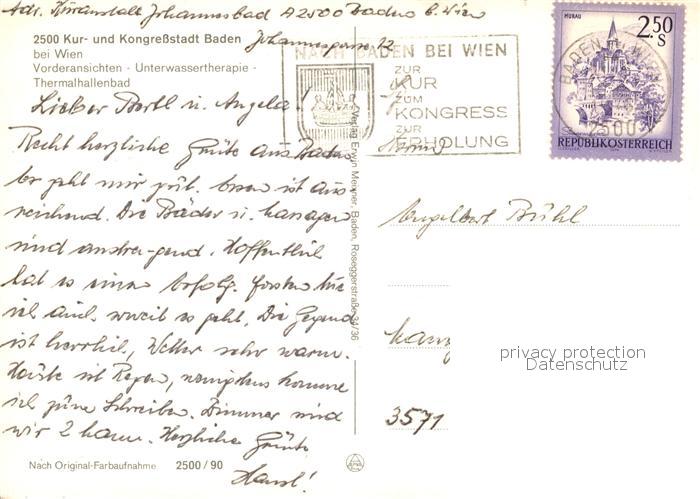 Adr. Kuranstalt Johannesbad A2500 Baden b. Wien
Johannesgasse 12
2500 Kur- und Kongreßstadt Baden
bei Wien
Vorderansichten - Unterwassertherapie -
Thermalhallenbad
Lieber Bertl u. Angela!
Recht herzliche Grüße aus Baden
Es geht mir gut. Essen ist aus
reichend. Die Bäder u. Massagen
sind anstrengend. Hoffentlich
hat es einen Erfolg.
viel auch, soweit es geht. Die Gegend
ist herrlich, Wetter sehr warm.
Heute ist Regen, wenigstens komme
ich zum Schreiben. Zimmer sind
wir 2 Mann. Herzliche Grüße
Hansl!
Nach Original-Farbaufnahme 2500/90
Verlag Erwin Meixner, Baden, Roseggerstraße 34/36
NACH BADEN BEI WIEN
ZUR
KUR
ZUM
KONGRESS
ZUR
ERHOLUNG
MURAU
2.50
S
BADEN B. WIEN
2500
REPUBLIK ÖSTERREICH
Engelbert Bühl
3571
privacy protection
Datenschutz